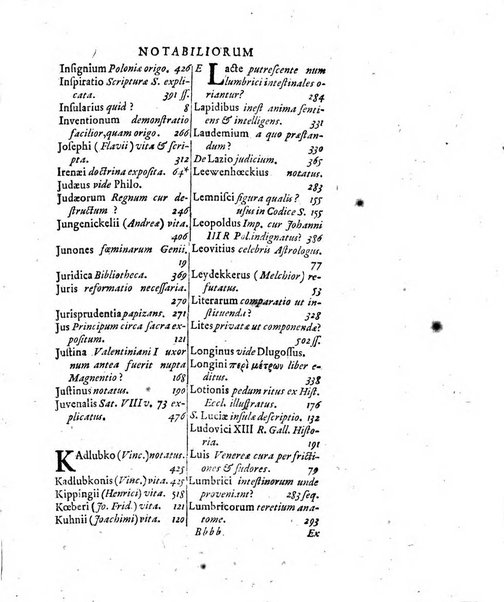 NOTABILIORUM
Insignium Poloniæ origo. 426
Inspiratio Scripturæ S. expli-
cata. 391 ss.
Insularius quid? 8
Inventionum demonstratio
facilior, quam origo. 266
Josephi (Flavii) vita & scri-
pta. 312
Irenæi doctrina exposita. 64*
Judæus vide Philo.
Judæorum Regnum cur de-
structum? 246
Jungenickelii (Andreæ) vita.
406
Junones fæminarum Genii.
19
Juridica Bibliotheca. 369
Juris reformatio necessaria.
270
Jurisprudentia papizans. 271
Jus Principum circa sacra ex-
positum. 121
Justina Valentiniani I uxor
num antea fuerit nupta
Magnentio? 168
Justinus notatus. 183
Juvenalis Sat. VIII v. 73 ex-
plicatus. 476
KAdlubko (Vinc.) notatus.
425
Kadlubkonis (Vinc.) vita. 425
Kippingii (Henrici) vita. 518
Kœberi (Jo. Frid.) vita. 121
Kuhnii (Joachimi) vita. 120
E Lacte putrescente num
lumbrici intestinales o-
riantur? 284
Lapidibus inest anima senti-
ens & intelligens. 331
Laudemium a quo præstan-
dum? 330
De Lazio judicium. 365
Leewenhœckius notatus.
283
Lemnisci figura qualis? 155
usus in Codice S. 155
Leopoldus Imp. cur Johanni
III R Pol. indignatus? 386
Leovitius celebris Astrologus.
77
Leydekkerus (Melchior) re-
futatus. 53
Literarum comparatio ut in-
stituenda? 328
Lites privatæ ut componendæ?
502 ss.
Longinus vide Dlugossus.
Longini περὶ μέτρων liber e-
ditus. 338
Lotionis pedum ritus ex Hist.
Eccl. illustratus. 176
S. Luciæ insulæ descriptio. 132
Ludovici XIII R. Gall. Histo-
ria. 191
Luis Venereæ cura per fricti-
ones & sudores. 79
Lumbrici intestinorum unde
proveniant? 283 seq.
Lumbricorum teretium ana-
tome. 293
Bbbb Ex